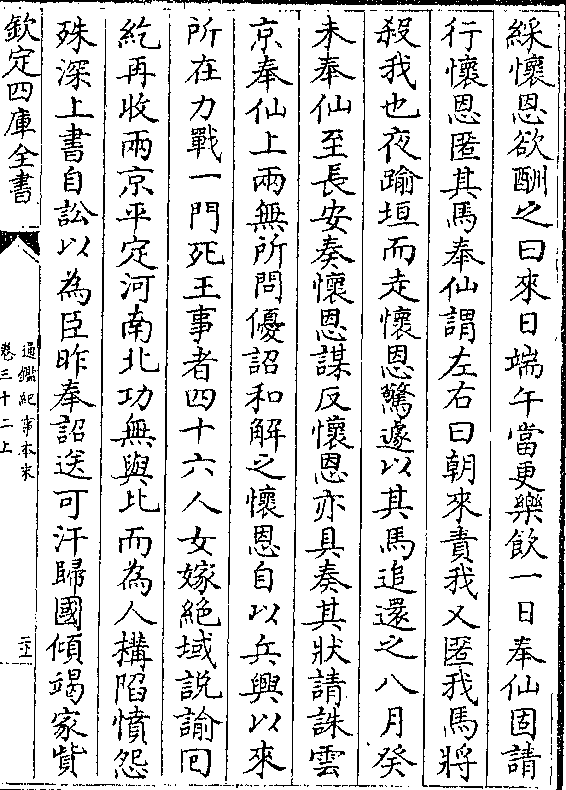 綵懷恩欲酬之曰來日端午當更樂飲一日奉仙固請
行懷恩匿其馬奉仙謂左右曰朝來責我又匿我馬將
殺我也夜踰垣而走懷恩驚遽以其馬追還之八月癸
未奉仙至長安奏懷恩謀反懷恩亦具奏其狀請誅雲
京奉仙上兩無所問優詔和解之懷恩自以兵興以來
所在力戰一門死王事者四十六人女嫁絶域説諭回
紇再收兩京平定河南北功無與比而為人構陷憤怨
殊深上書自訟以為臣昨奉詔送可汗歸國傾竭家貲
欽定四庫全書
通鑑紀事本末
卷三十二上